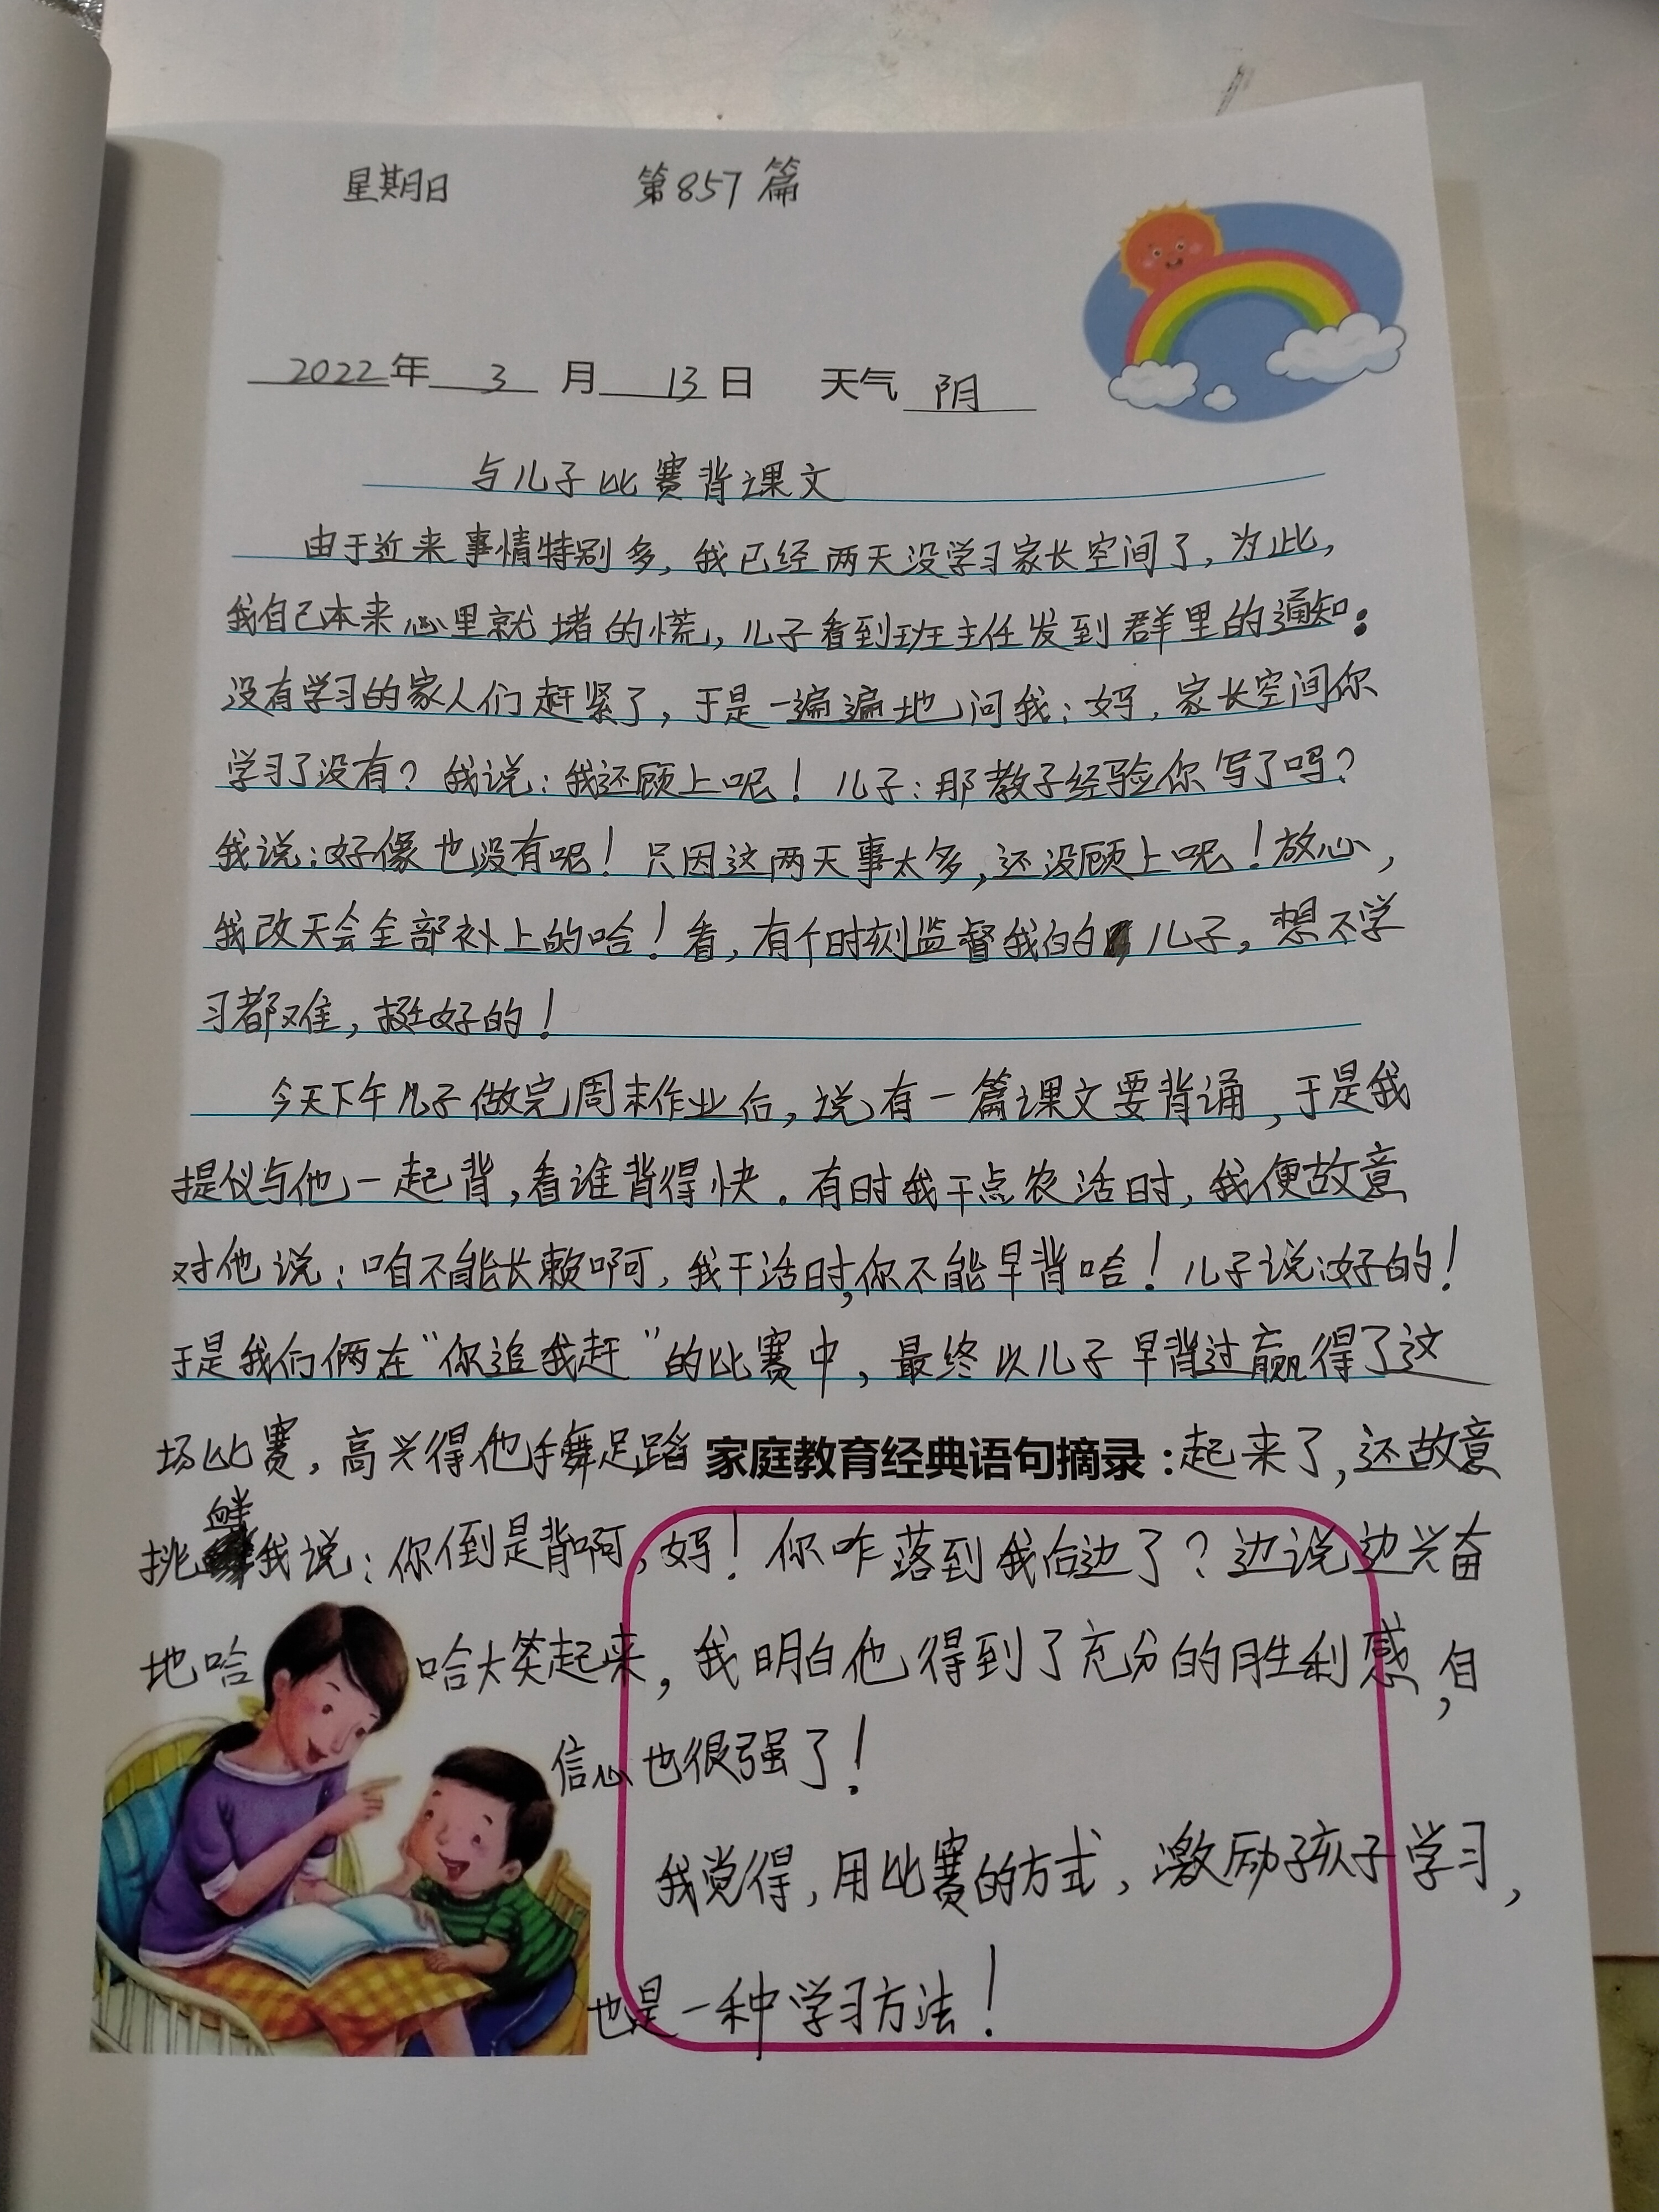 星期日 第857篇
2022年 3 月 13 日 天气 阴
与儿子比赛背课文
由于近来事情特别多，我已经两天没学习家长空间了，为此，
我自己本来心里就堵的慌，儿子看到班主任发到群里的通知：
没有学习的家人们赶紧了，于是一遍遍地问我：妈，家长空间你
学习了没有？我说：我还顾上呢！儿子：那教子经验你写了吗？
我说：好像也没有呢！只因这两天事太多，还没顾上呢！放心，
我改天会全部补上的哈！看，有个时刻监督我的儿子，想不学
习都难，挺好的！
今天下午儿子做完周末作业后，说有一篇课文要背诵，于是我
提仪与他一起背，看谁背得快。有时我干点农活时，我便故意
对他说：咱不能长赖啊，我干活时，你不能早背哈！儿子说：好的！
于是我们俩在“你追我赶”的比赛中，最终以儿子早背过赢得了这
场比赛，高兴得他手舞足蹈 家庭教育经典语句摘录：起来了，还故意
挑衅我说：你倒是背啊，妈！你咋落到我后边了？边说边兴奋
地哈哈大笑起来，我明白他得到了充分的胜利感，自
信心也很强了！
我觉得，用比赛的方式，激励孩子学习，
也是一种学习方法！